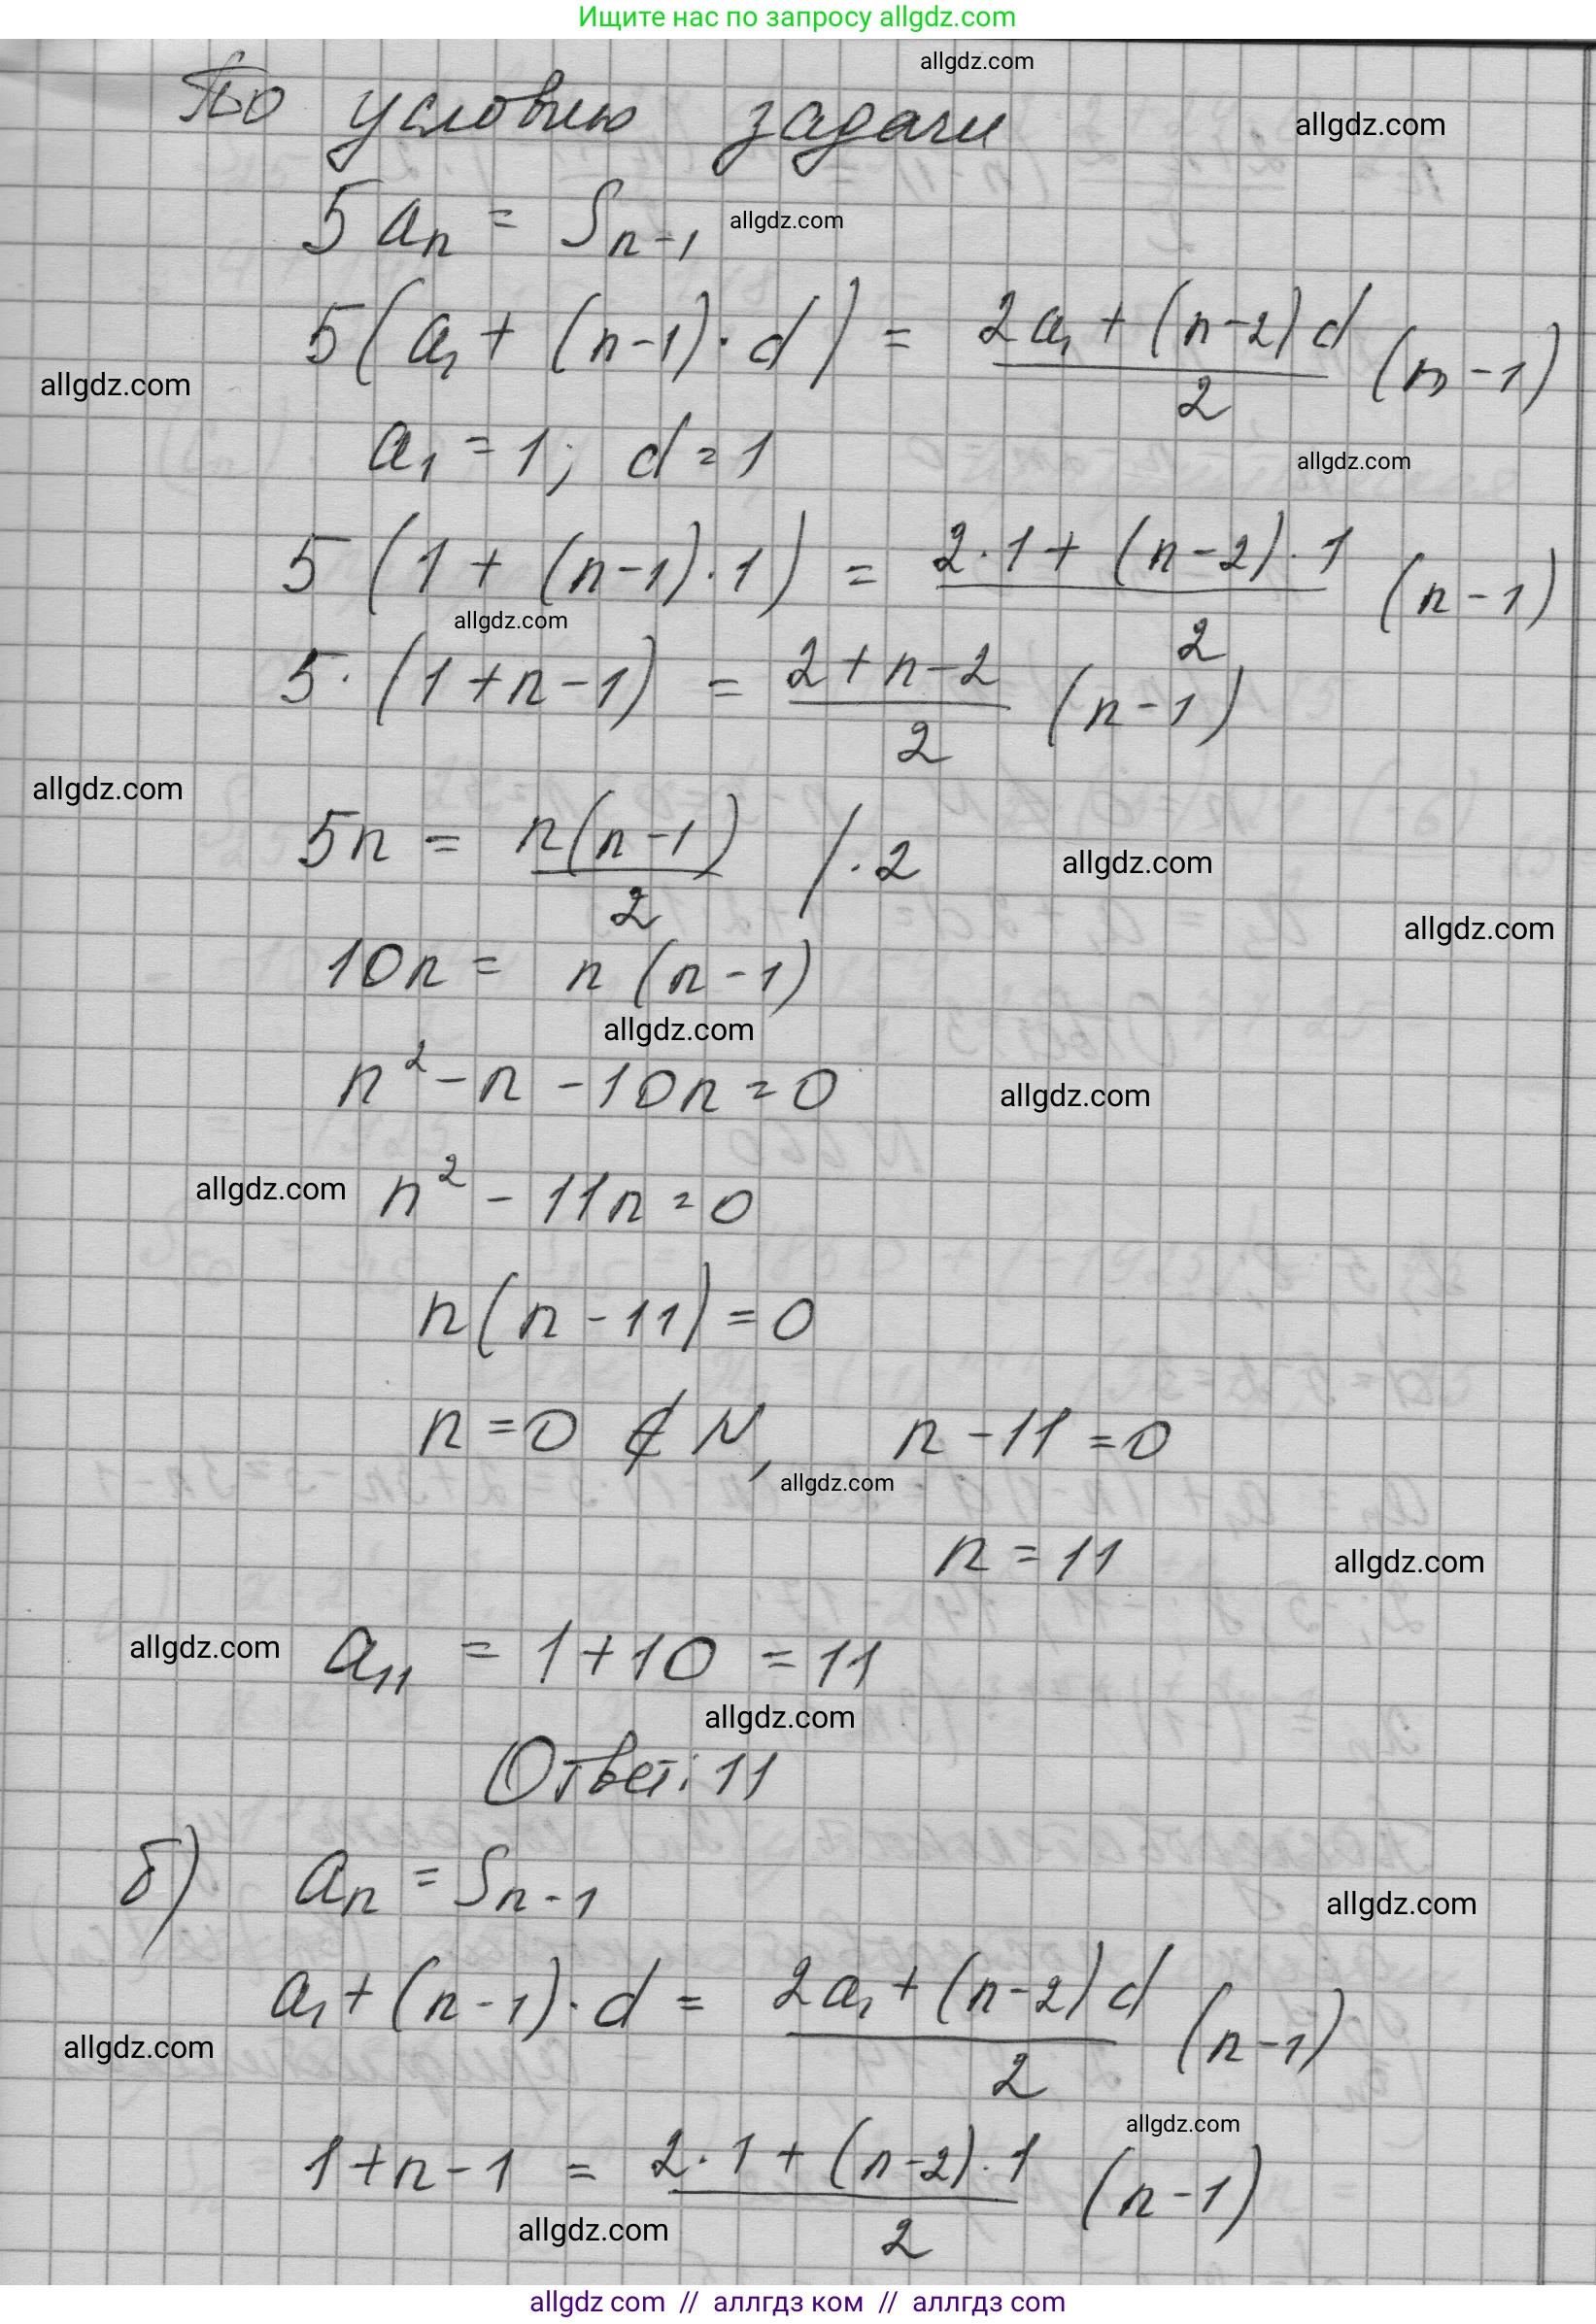 Ищите нас по запросу allgdz.com
allgdz.com
По условию задачи
allgdz.com
5aₙ = Sₙ₋₁
allgdz.com
5(a₁ + (n-1)·d) = (2a₁ + (n-2)d)/2 (n-1)
allgdz.com
a₁ = 1; d = 1
allgdz.com
5(1 + (n-1)·1) = (2·1 + (n-2)·1)/2 (n-1)
allgdz.com
5·(1+n-1) = (2+n-2)/2 (n-1)
allgdz.com
5n = n(n-1)/2 /·2
allgdz.com
allgdz.com
10n = n(n-1)
allgdz.com
n² - n - 10n = 0
allgdz.com
allgdz.com
n² - 11n = 0
n(n-11) = 0
n = 0 ∉ N, n - 11 = 0
allgdz.com
n = 11
allgdz.com
allgdz.com
a₁₁ = 1 + 10 = 11
allgdz.com
Ответ: 11
б) aₙ = Sₙ₋₁
allgdz.com
a₁ + (n-1)·d = (2a₁ + (n-2)d)/2 (n-1)
allgdz.com
allgdz.com
1+n-1 = (2·1 + (n-2)·1)/2 (n-1)
allgdz.com
allgdz com // аллгдз ком // аллгдз com